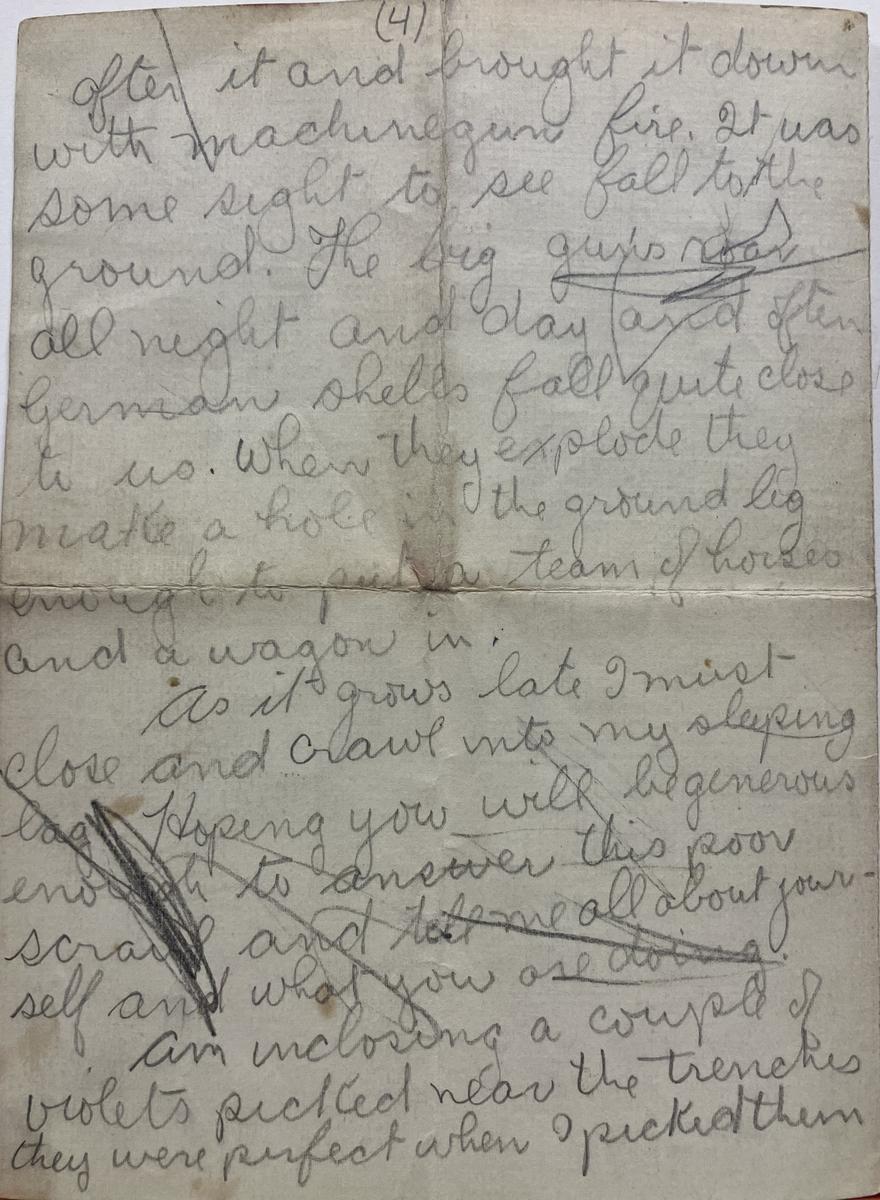 (4)
after it and brought it down
with machinegun fire. It was
some sight to see fall to the
ground. The big guns roar
all night and day and often
German shells fall quite close
to us. When they explode they
make a hole in the ground big
enough to put a team of horses
and a wagon in.
As it grows late I must
close and crawl into my sleeping
bag. Hoping you will be generous
enough to answer this poor
scrawl and tell me all about your-
self and what you are doing.
Am inclosing a couple of
violets picked near the trenches
they were perfect when I picked them